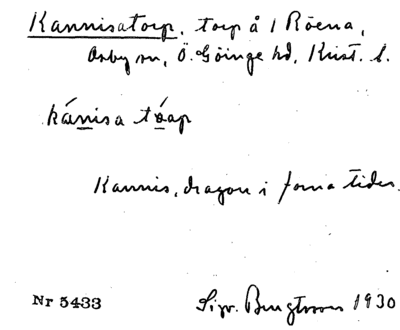 Kannisatorp, torp å 1 Röena,
Osby sn, Ö. Göinge hd, Krist. l.
kánnisa tóap
Kannis, dragon i forna tider.
Nr 5433 Sigv. Bengtsson 1930